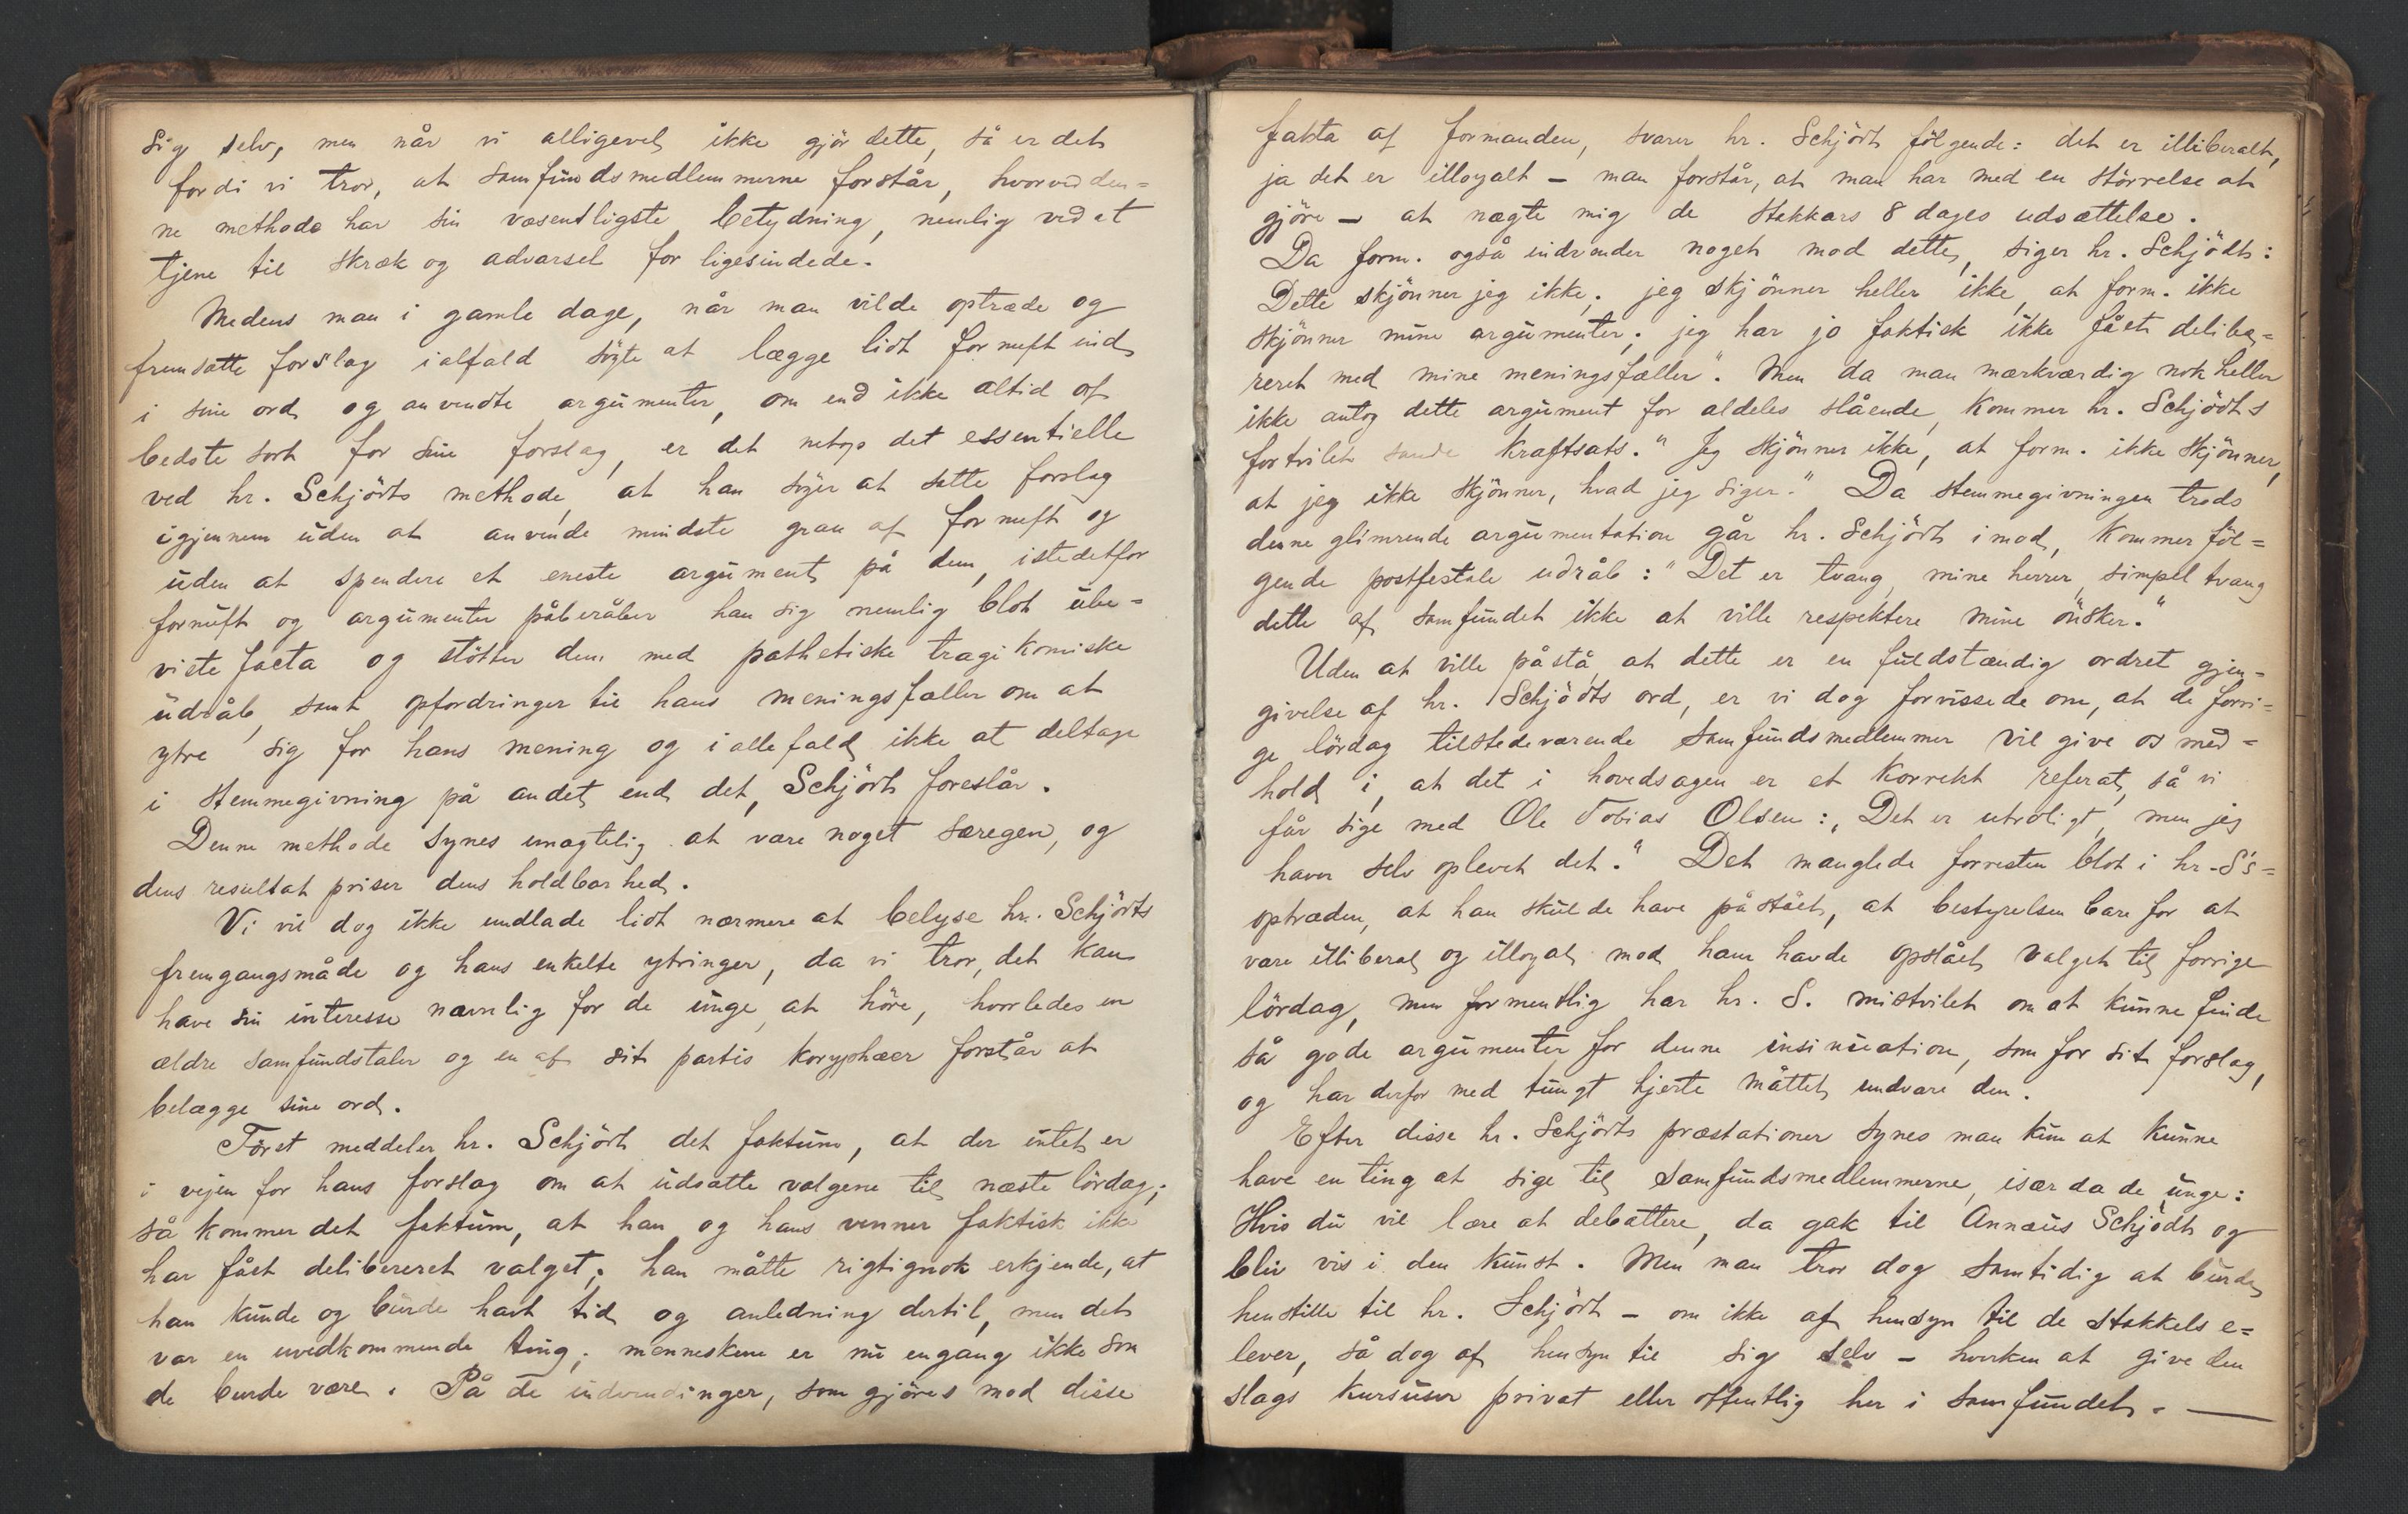 sig selv, men når vi alligevel ikke gjör dette, så er det
fordi vi tror, at samfundsmedlemmerne forstår, hvorved den=
ne methode har sin væsentligste betydning, nemlig ved at
tjene til skræk og advarsel for ligesindede.
Medens man i gamle dage, når man vilde optræde og
fremsatte forslag ialfald sögte at lægge lidt fornuft ind
i sine ord og anvendte argumenter, om end ikke altid af
bedste sort for sine forslag, er det netop det essentielle
ved hr. Schjödts methode, at han söger at sætte forslag
igjennem uden at anvende mindste gran af fornuft og
uden at spendere et eneste argument på dem, istedetfor
fornuft og argumenter påberåber han sig nemlig blot ube=
viste facta og stötter dem med pathetiske tragikomiske
udråb, samt opfordringer til hans meningsfæller om at
ytre sig for hans mening og i alle fald ikke at deltage
i stemmegivning på andet end det, Schjödt foreslår.
Denne methode synes unægtelig at være noget særegen, og
dens resultat priser dens holdbarhed.
Vi vil dog ikke undlade lidt nærmere at belyse hr. Schjödts
fremgangsmåde og hans enkelte ytringer, da vi tror, det kan
have sin interesse navnlig for de unge, at höre, hvorledes en
ældre samfundstaler og en af sit partis koryphæer forstår at
belægge sine ord.
Först meddeler hr. Schjödt det faktum, at der intet er
i vejen for hans forslag om at udsætte valgene til næste lördag;
så kommer det faktum, at han og hans venner faktisk ikke
har fået delibereret valget; han måtte rigtignok erkjende, at
han kunde og burde havt tid og anledning dertil, men det
var en uvedkommende ting; menneskene er nu engang ikke som
de burde være. På de indvendinger, som gjöres mod disse
fakta af formanden, svarer hr. Schjödt fölgende: det er illiberalt,
ja det er illoyalt – man forstår, at man har med en störrelse at
gjöre – at nægte mig de stakkars 8 dages udsættelse.
Da form. også indvender noget mod dette, siger hr. Schjödt:
Dette skjönner jeg ikke; jeg skjönner heller ikke, at form. ikke
skjönner mine argumenter; jeg har jo faktisk ikke fået delibe=
reret med mine meningsfæller". Men da man mærkværdig nok heller
ikke antog dette argument for aldeles slående, kommer hr. Schjödts
fortvilet sande kraftsats. "Jeg skjönner ikke, at form. ikke skjönner,
at jeg ikke skjönner, hvad jeg siger." Da stemmegivningen trods
denne glimrende argumentation går hr. Schjödt imod, kommer föl=
gende postfestale udråb: "Det er tvang, mine herrer, simpel tvang
dette af samfundet ikke at ville respektere mine önsker."
Uden at ville påstå, at dette er en fuldstændig ordret gjen=
givelse af hr. Schjödts ord, er vi dog forvissede om, at de forri=
ge lördag tilstedeværende samfundsmedlemmer vil give os med=
hold i, at det i hovedsagen er et korrekt referat, så vi
får sige med Ole Tobias Olsen: „Det er utroligt, men jeg
haver selv oplevet det." Det manglede forresten blot i hr. S's=
optræden, at han skulde have påstået, at bestyrelsen bare for at
være illiberal og illoyal mod ham havde opslået valget til forrige
lördag, men formentlig har hr. S. mistvilet om at kunne finde
så gode argumenter for denne insinuation, som for sit forslag,
og har derfor med tungt hjerte måttet undvære den.
Efter disse hr. Schjödts præstationer synes man kun at kunne
have en ting at sige til samfundsmedlemmerne, især da de unge:
Hvis du vil lære at debattere, da gak til Annæus Schjödt og
bliv vis i den kunst. Men man tror dog samtidig at burde
henstille til hr. Schjödt – om ikke af hensyn til de stakkels e=
lever, så dog af hensyn til sig selv – hverken at give den
slags kursuser privat eller offentlig her i samfundet. —